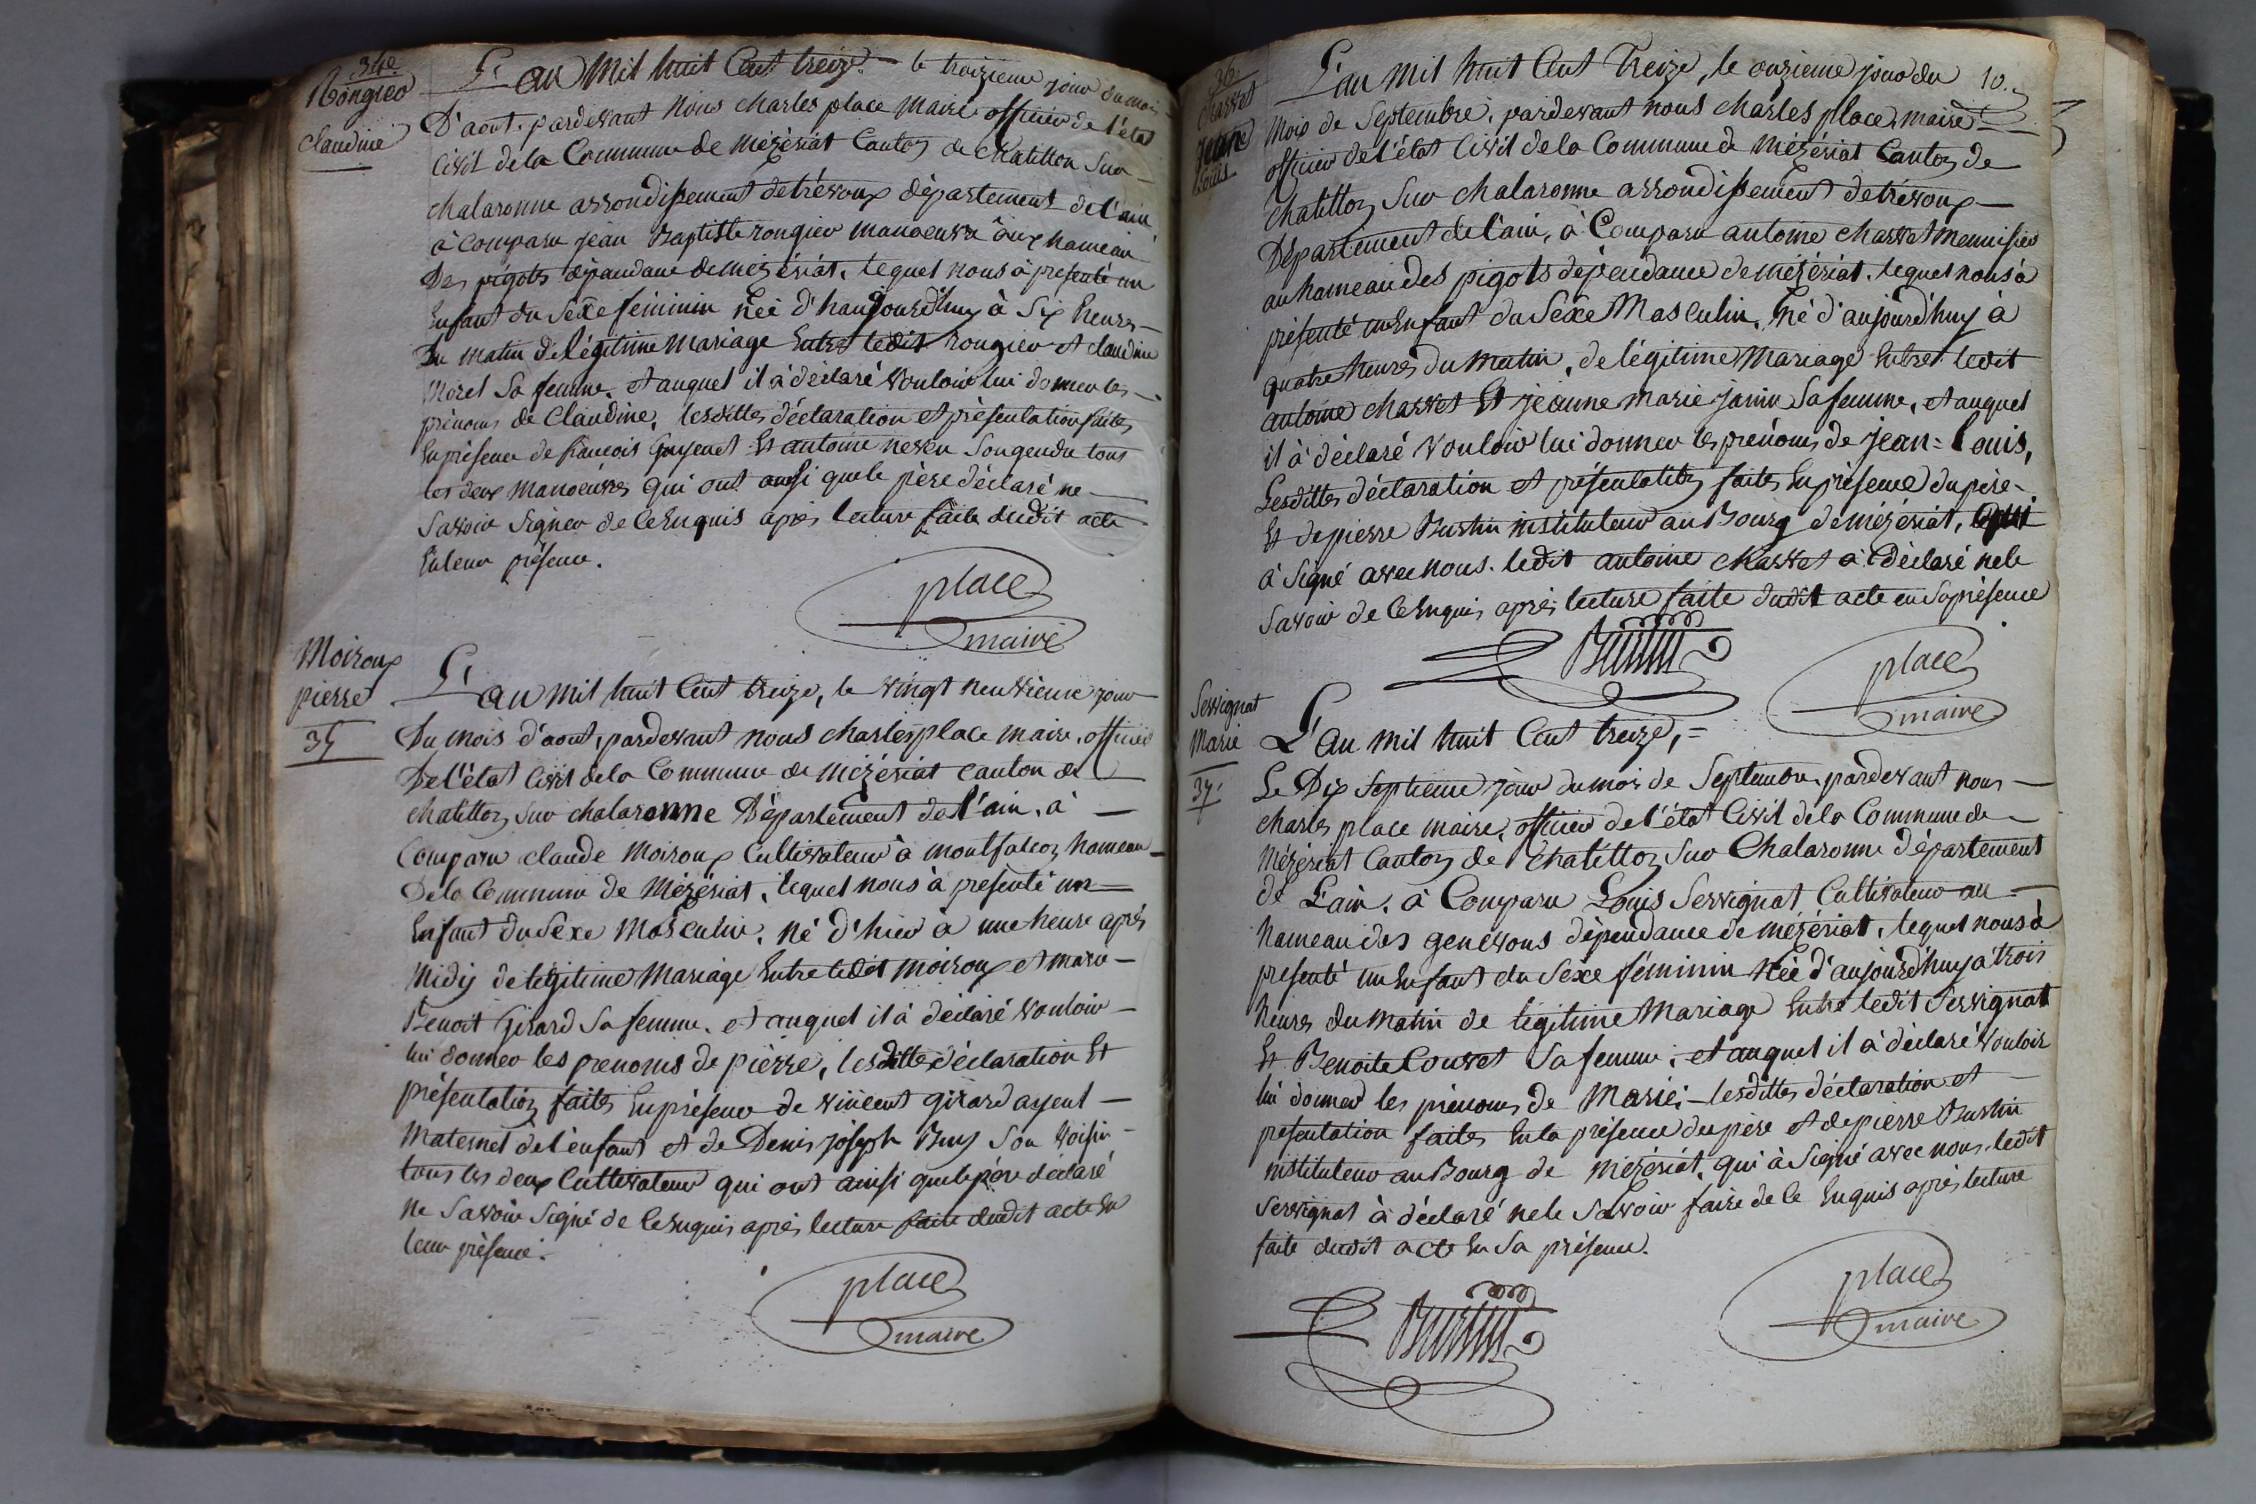 34e
Rongier
Claudine
L'an mil huit Cent treize. le troizieme jour du mois
D'aout, pardevant Nous charles place Maire officier de l'état
Civil de la Commune de mézériat Canton de Chatillon Sur
chalaronne arrondissement de trévoux département de l'ain
à Comparu jean Baptiste rongier manoeuvre aux hameau
Des pigots dépandance de mézériat, lequel nous à présenté un
Enfant du Séxe féminin Née d'haujourd'huy à Six heures
Du matin de légitime Mariage Entre ledit rongier et claudine
Morel Sa femme, et auquel il à declaré Vouloir lui donner les
prénoms de Claudine, lesdittes déclaration et présentation faites
En présence de francois Guyenet Et antoine neveu Son gendre tous
les deux Manoeuvres qui ont ausi que le père déclaré ne
Savoir Signer de Ce Enquis après lecture faite dudit acte
En leur présence.
place
maire
Moiroux
pierre
35
L'an mil huit Cent treize, le vingt neuvieme jour
Du mois d'aout, pardevant nous charles place maire, officier
De l'état Civil de la Commune de mézériat canton de
chatillon sur chalaronne Département de l'ain, à
Comparu claude Moiroux Cultivateur à montfalcon hameau
De la Commune de Mézériat, lequel nous à présenté un
Enfant du Sexe Masculin, né d'hier à une heure après
Midy de légitime Mariage Entre ledit moiroux et marie
Benoit Girard Sa femme, et auquel il à déclaré vouloir
lui donner les prenoms de pierre, lesditte déclaration Et
présentation faites En présence de vincent girard ayeul
Maternel de l'enfant et de Denis joseph Buy Son Voisin
tous les deux Cultivateur qui ont ainsi que le père déclaré
Ne Savoir Signé de Ce Enquis après lecture faite dudit acte En
leur présence.
place
maire
10.
36.
charvet
jean
Louis
L'an mil huit Cent Treize, le onzieme jour du
Mois de Septembre, pardevant nous charles place, maire
officier de l'état Civil de la Commune de mézériat Canton de
chatillon Sur chalaronne arrondissement de trevoux
Département de l'ain, à Comparu antoine charvet menuisier
au hameau des pigots dépendance de mézériat, lequel nous à
présenté un Enfant du Sexe Masculin, né d'aujourd'huy à
quatre heures du Matin, de légitime Mariage Entre ledit
antoine charvet Et jeanne marie janin Sa femme, et auquel
il à déclaré Vouloir lui donner les prénoms de jean = Louis,
Lesdittes déclaration et présentation faites En présence du père
Et de pierre Bustin instituteur au Bourg de mézériat, qui
à Signé avec nous. ledit antoine charvet à déclaré ne le
Savoir de Ce Enquis après lecture faite dudit acte en Sa présence
Bustin
place
maire
Servignat
Marie
37.
L'an mil huit Cent treize,
Le Dix Septieme jour du mois de Septembre, pardevant nous
charles place maire, officier de l'état Civil de la Commune de
Mézériat Canton de Chatillon Sur Chalaronne département
de L'ain, à Comparu Louis Servignat Cultivateur au
hameau des genevons dépendance de mézériat, lequel nous à
présenté un Enfant du Sexe féminin Née d'aujourd'huy à trois
heures du Matin de légitime Mariage Entre ledit Servignat
Et Benoite Couvet Sa femme, et auquel il à déclaré Vouloir
lui donner les prénoms de Marie; lesdittes déclaration et
présentation faites En la présence du père et de pierre Bustin
instituteur au Bourg de mézériat, qui à Signé avec nous, ledit
Servignat à déclaré ne le Savoir faire de Ce Enquis après lecture
faite dudit acte En Sa présence.
Bustin
place
maire